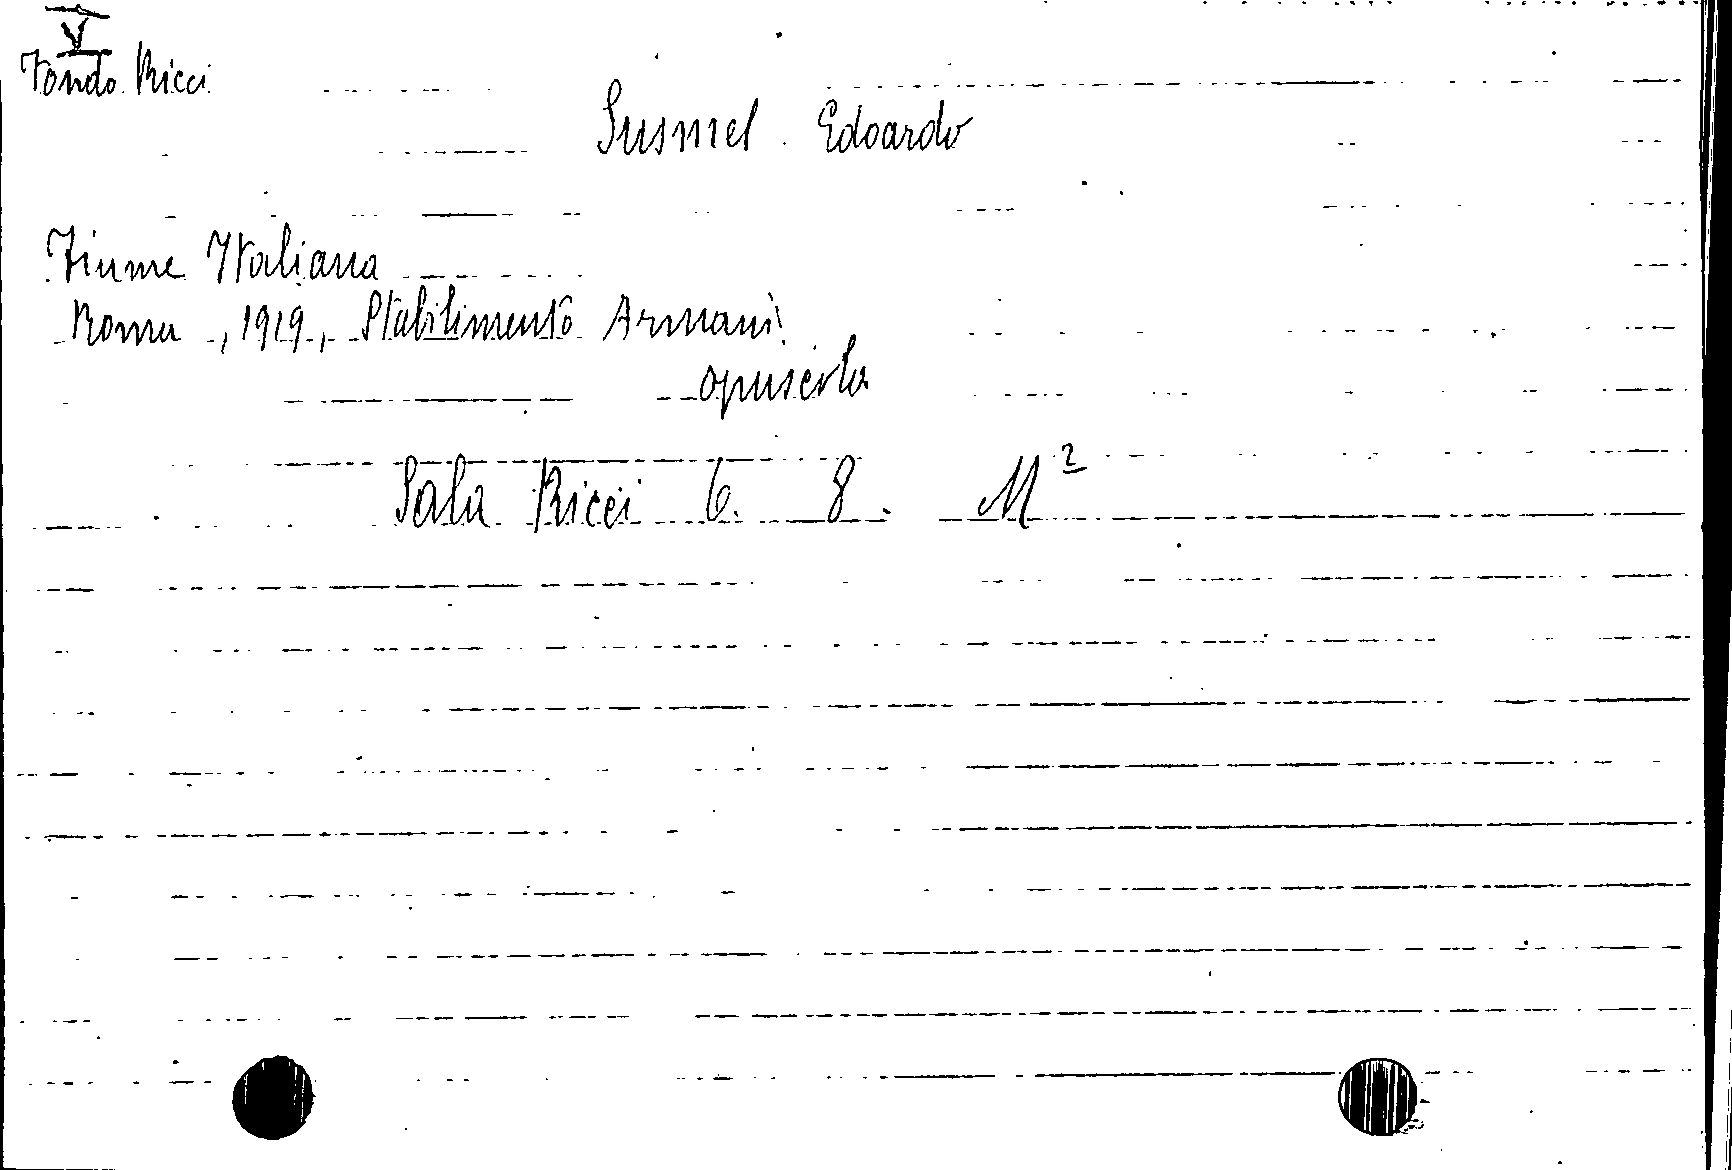 V
Fondo Ricci
Susmel Edoardo
Fiume Italiana
Roma, 1919, Stabilimento Armani
opuscolo
Sala Ricci 6. 8. M²